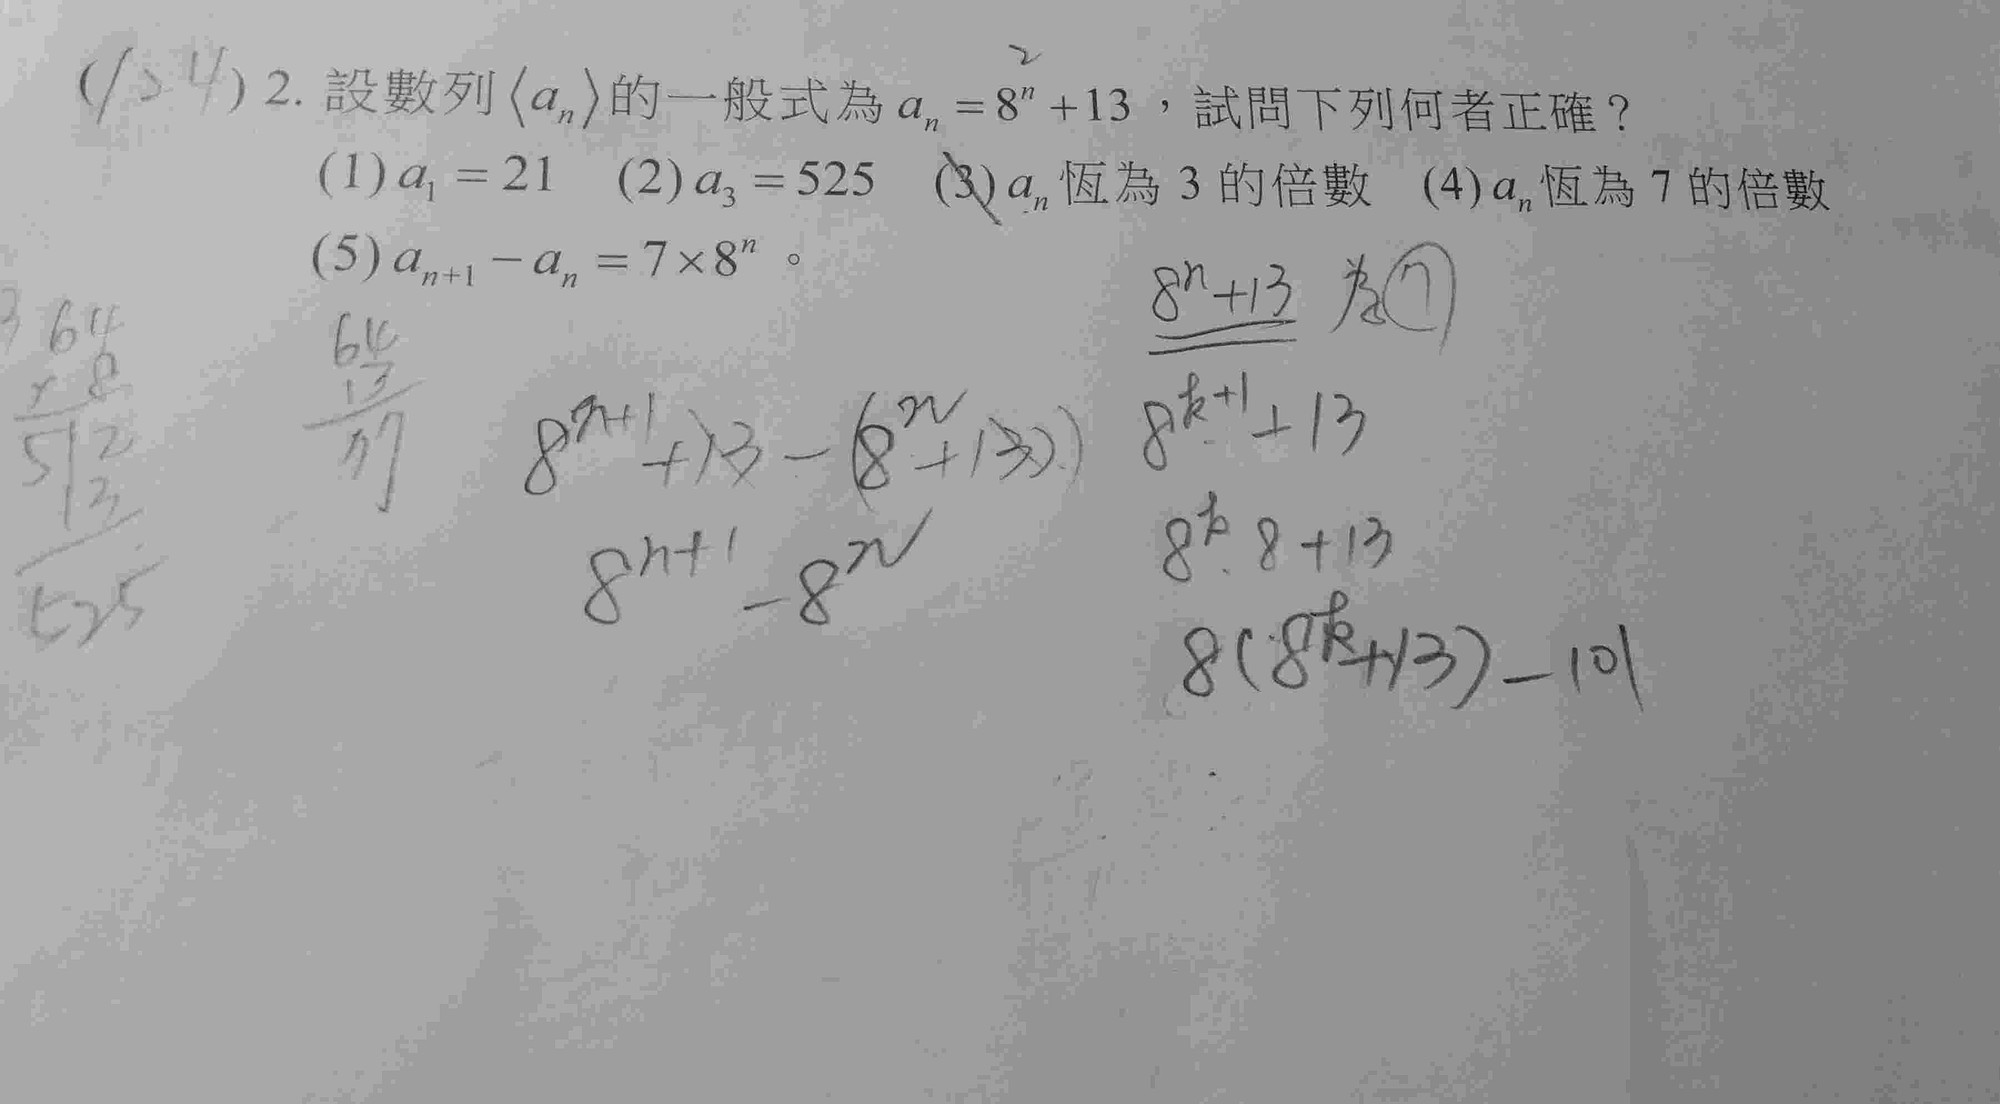 (1 2 4) 2. 設數列⟨aₙ⟩的一般式為 aₙ = 8ⁿ + 13，試問下列何者正確？
2
(1) a₁ = 21 (2) a₃ = 525 (3) aₙ 恆為 3 的倍數 (4) aₙ 恆為 7 的倍數
(5) aₙ₊₁ − aₙ = 7 × 8ⁿ。
64
× 8
512
13
525
64
13
77
8ⁿ⁺¹ + 13 − (8ⁿ + 13)
8ⁿ⁺¹ − 8ⁿ
8ⁿ + 13 為 7
8ᵏ⁺¹ + 13
8ᵏ · 8 + 13
8(8ᵏ + 13) − 101